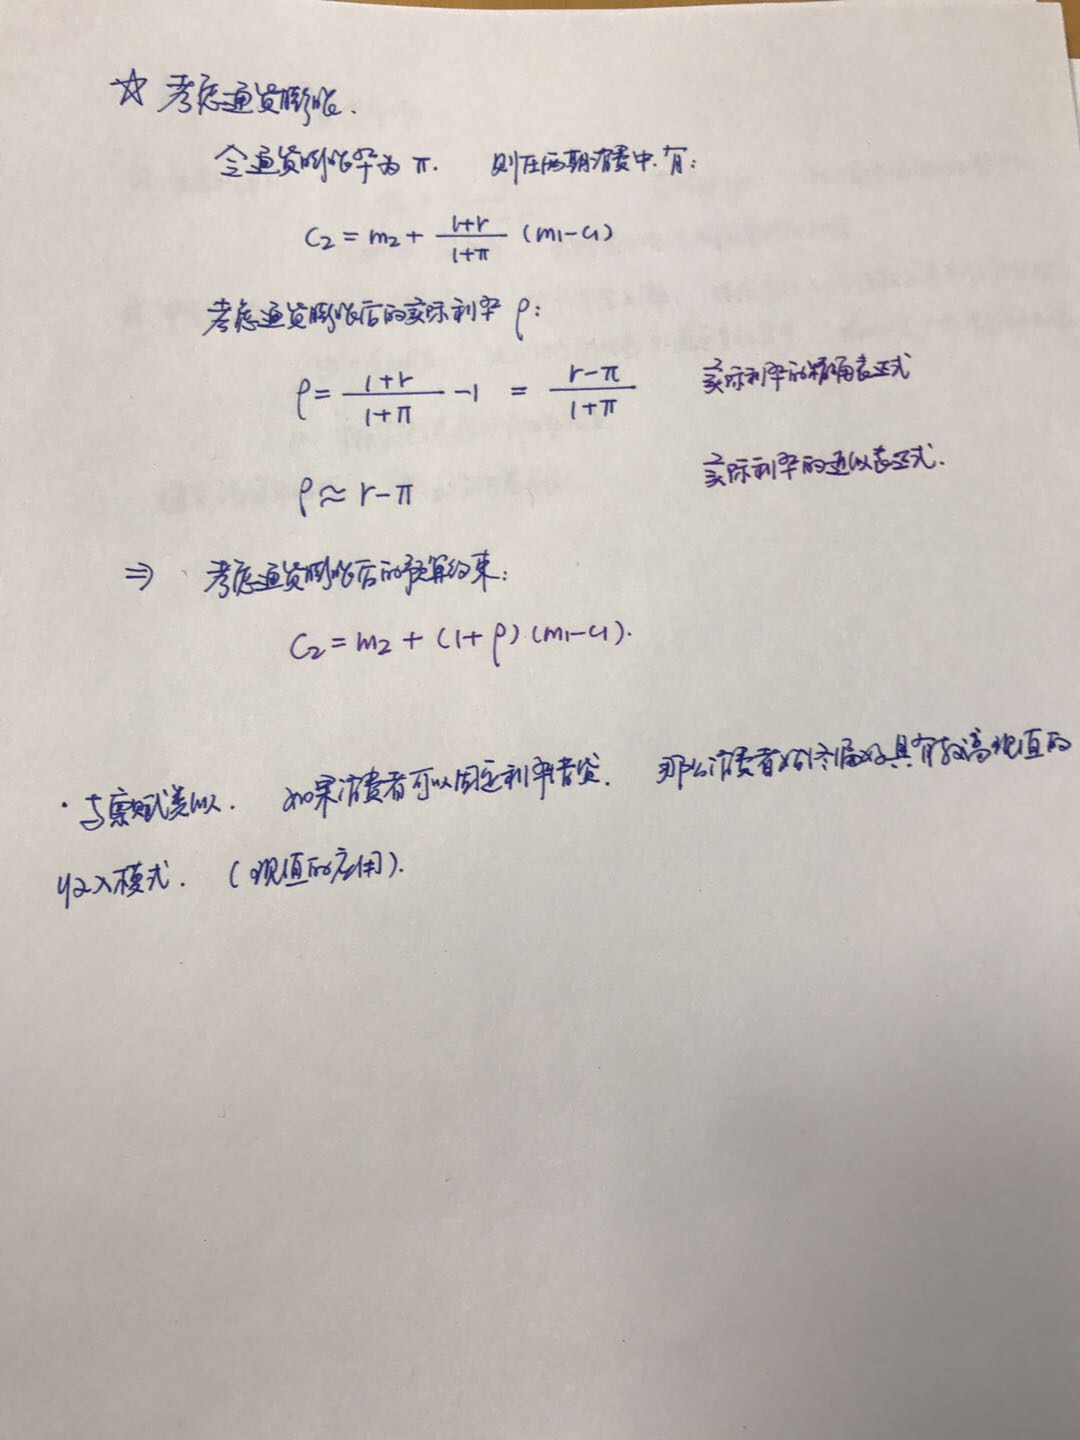 ☆ 考虑通货膨胀.
令通货膨胀率为 π. 则在两期消费中.有:
C₂ = m₂ + (1+r)/(1+π) (m₁-c₁)
考虑通货膨胀后的实际利率 ρ:
ρ = (1+r)/(1+π) -1 = (r-π)/(1+π) 实际利率的精确表达式
ρ ≈ r-π 实际利率的近似表达式.
⇒ 考虑通货膨胀后的预算约束:
C₂ = m₂ + (1+ρ)(m₁-c₁).
· 与禀赋类似. 如果消费者可以固定利率借贷. 那么消费者始终偏好具有较高现值的
收入模式. (现值的应用).